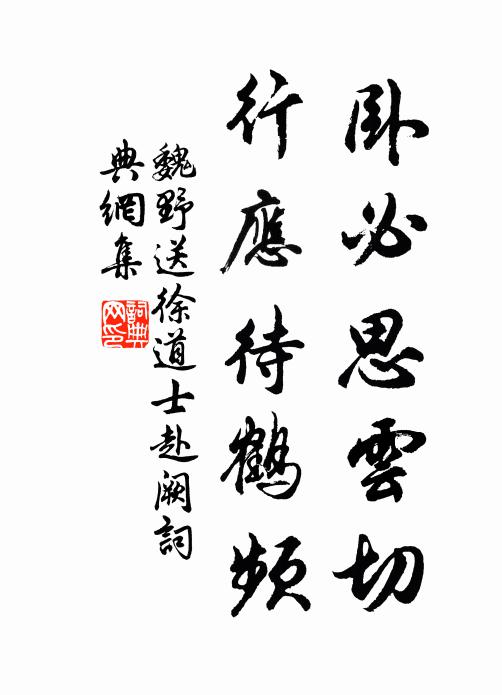 臥必思雲切
行應待鶴頻
魏野送徐道士赴阙詞
典網集
詞典
网印